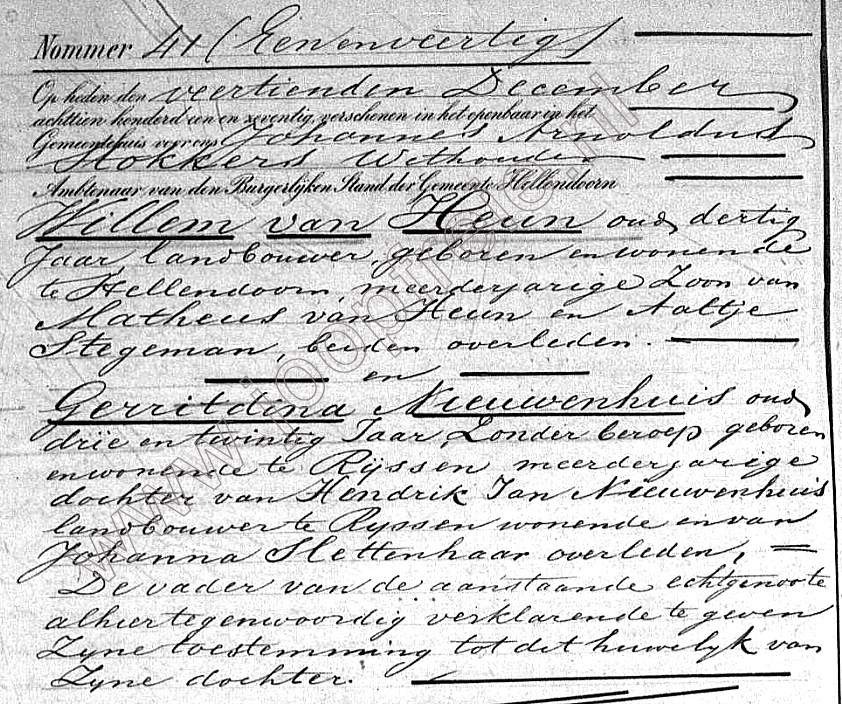 Nommer 41 (Eenenveertig)
Op heden den veertienden December
achttien honderd een en zeventig, verschenen in het openbaar in het
Gemeentehuis voor ons Johannes Arnoldus
Stokkers Wethouder
Ambtenaar van den Burgerlijken Stand der Gemeente Hellendoorn
Willem van Heun oud dertig
Jaar, landbouwer, geboren en wonende
te Hellendoorn, meerderjarige Zoon van
Matheus van Heun en Aaltje
Stegeman, beiden overleden.
en
Gerritdina Nieuwenhuis oud
drie en twintig Jaar Zonder beroep geboren
en wonende te Ryssen meerderjarige
dochter van Hendrik Jan Nieuwenhuis
landbouwer te Ryssen wonende en van
Johanna Slettenhaar overleden,
De vader van de aanstaande echtgenoote
alhier tegenwoordig verklarende te geven
Zyne toestemming tot dit huwelyk van
Zyne dochter.